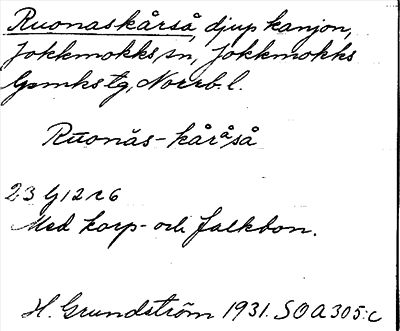 Ruonaskårså, djup kanjon,
Jokkmokks sn, Jokkmokks
lpmks tg, Norrb. l.
Rūonȧs-kåråså
23 G12 r6
Med korp- och falkbon.
H. Grundström 1931. SOA 305:c